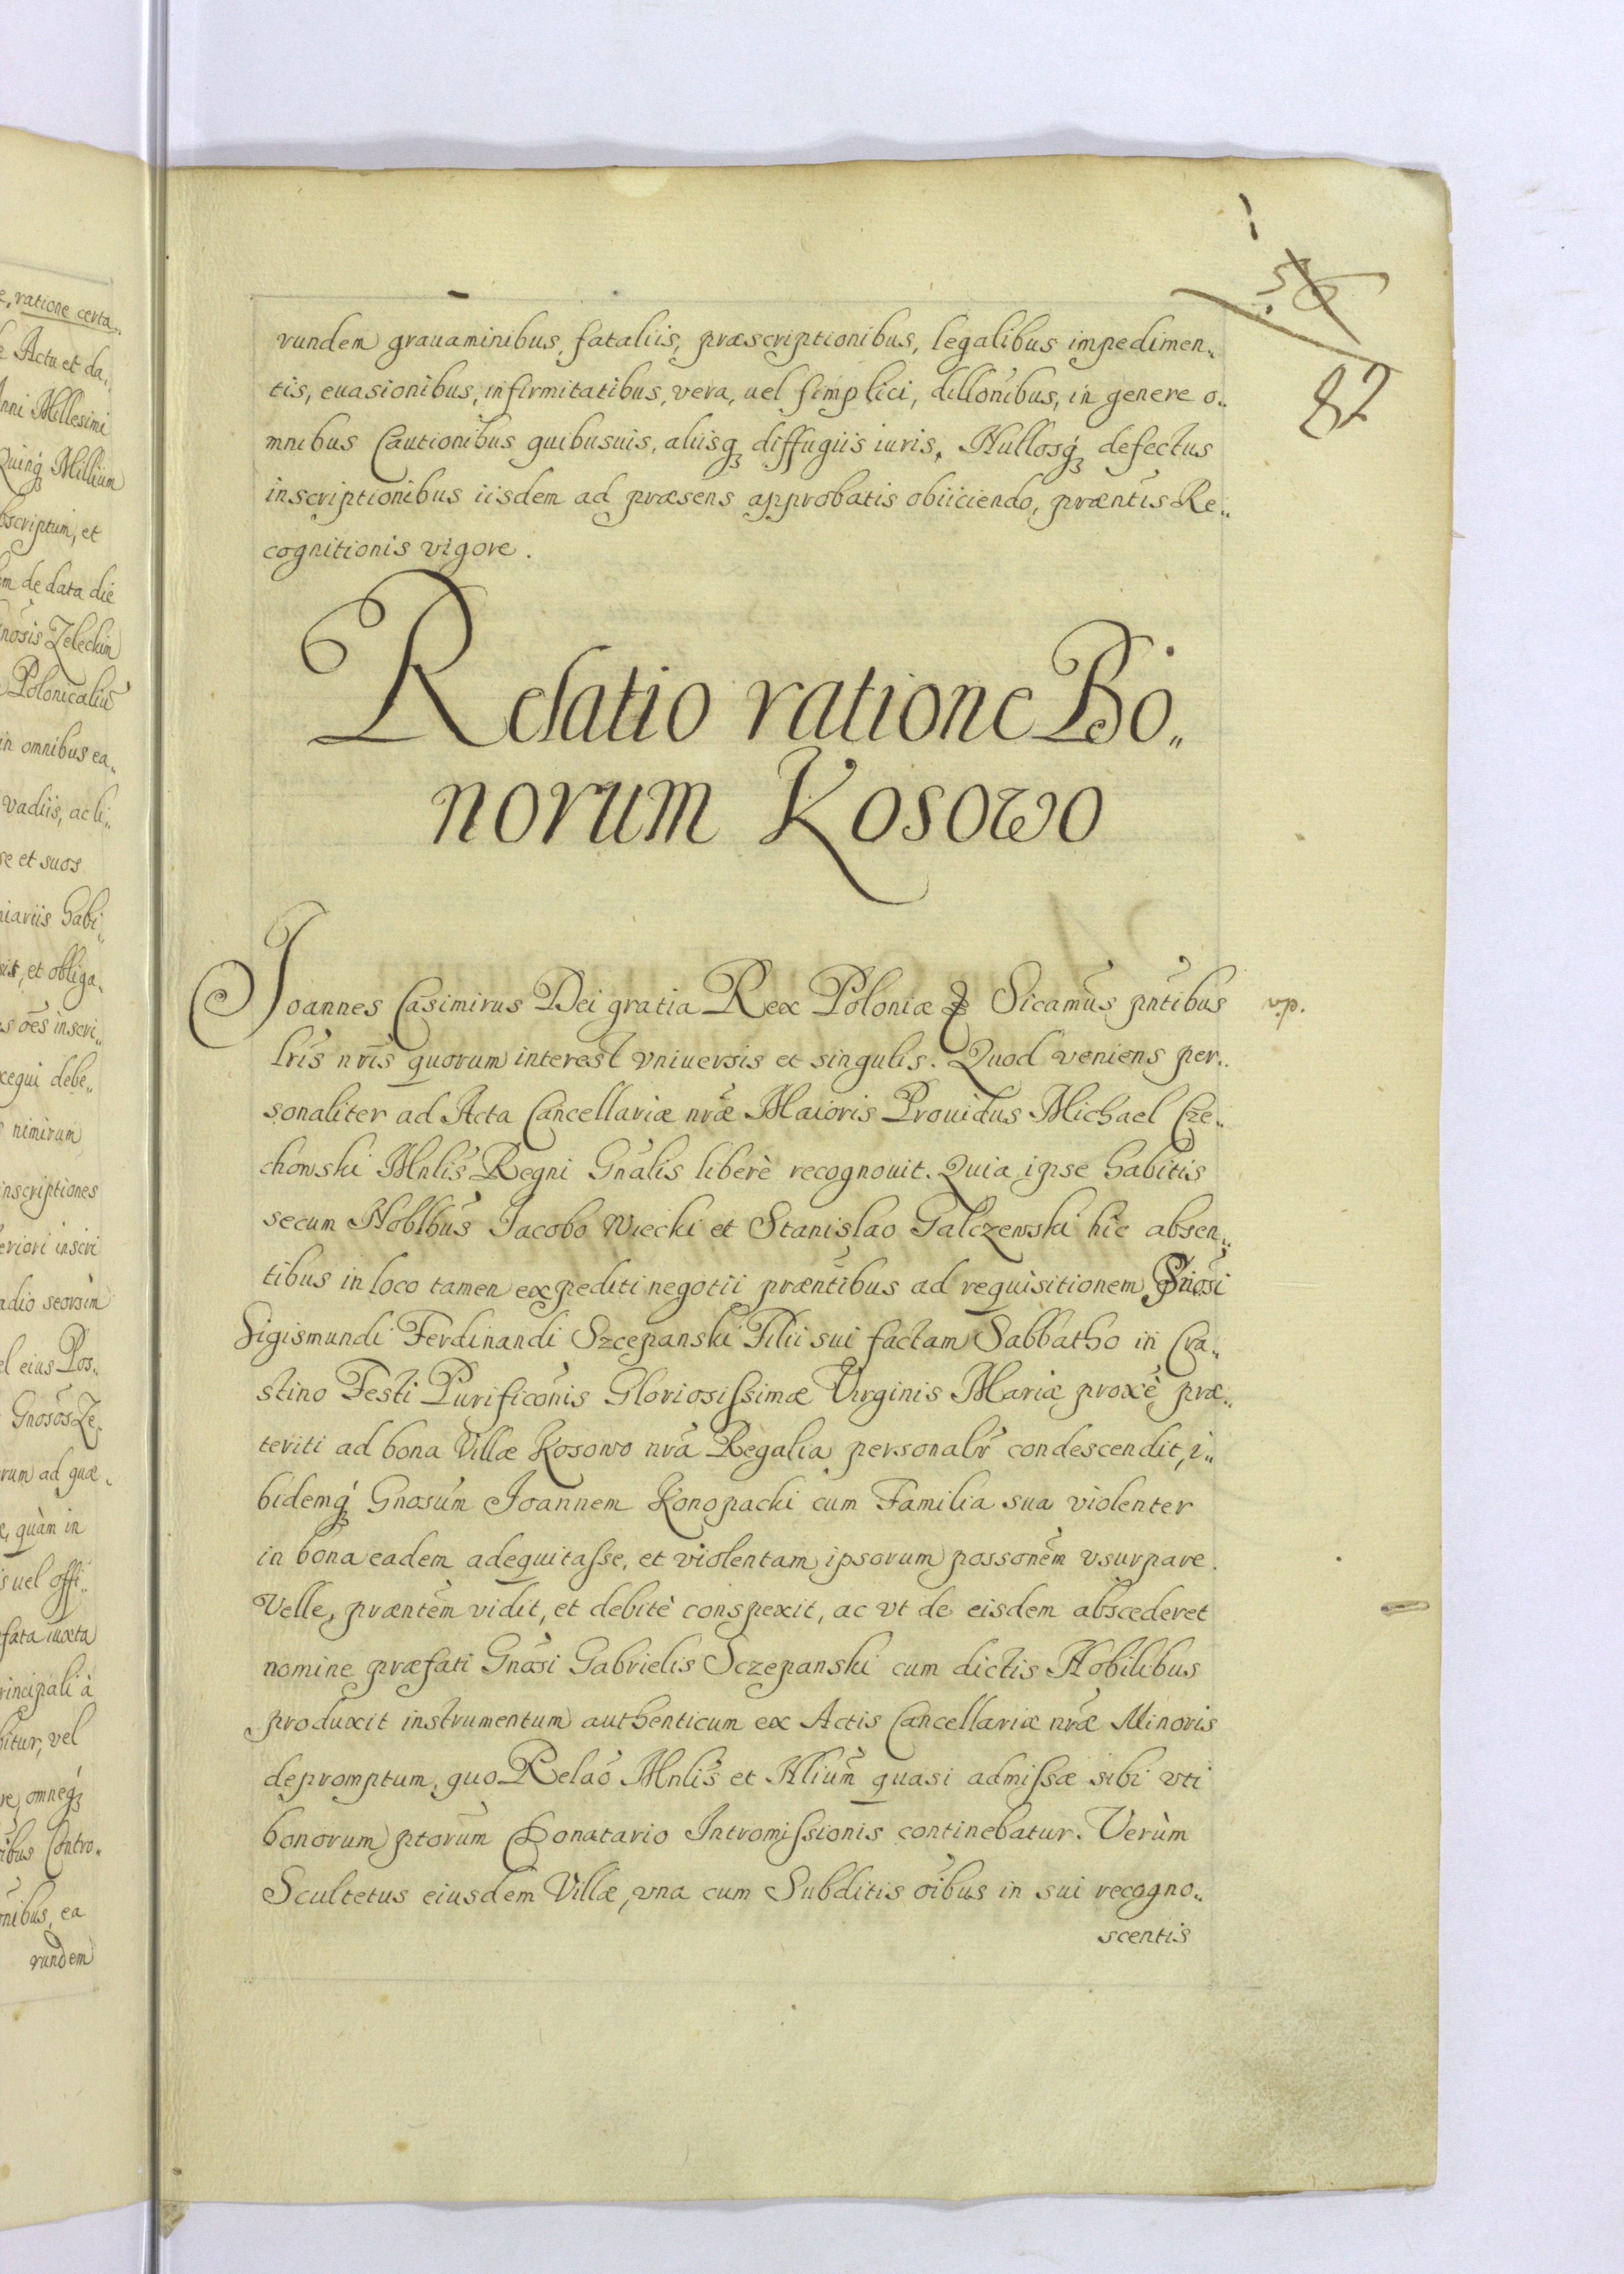 e, ratione certa„
e Actu et da„
Anni Millesimi
Quinq́ Millium
bscriptum, et
em de data die
nōsis Zeleckim
Polonicaliū
in omnibus ea„
vadiis, ac li„
se et suos
niariis habi„
sit, et obliga„
s oēs inscri„
xequi debe„
s nimirum
inscriptiones
eriori inscri
adio seorsim
el eius Pos„
Gnosos Ze„
rum ad quæ„
e, quàm in
s uel offi„
fata iuxta
rincipali à
bitur, vel
re, omneq́
ibus Contro„
onibus, ea
rundem
56
82
rundem grauaminibus, fataliis, præscriptionibus, legalibus impedimen„
tis, euasionibus, infirmitatibus, vera, uel simplici, dillōnibus, in genere o„
mnibus Cautionibus quibusuis, aliisq́ diffugiis iuris, Nullosq́ defectus
inscriptionibus iisdem ad præsens approbatis obiiciendo, præntis Re„
cognitionis vigore.
Relatio ratione Bo„
norum Kosowo
Joannes Casimirus Dei gratia Rex Poloniæ & Sicamūs pntibus v.p.
lris nris quorum interest vniuersis et singulis. Quod veniens per„
sonaliter ad Acta Cancellariæ nræ Maioris Prouidus Michael Cze„
chowski Mnlis Regni Gnalis liberè recognouit. Quia ipse habitis
secum Noblbus Jacobo Wiecki et Stanislao Galczewski hic absen„
tibus in loco tamen expediti negotii præntibus ad requisitionem Gnosi
Sigismundi Ferdinandi Szcepanski Filii sui factam Sabbatho in Cra„
stino Festi Purificōnis Gloriosissimæ Virginis Mariæ proxè præ„
teriti ad bona Villæ Kosowo nra Regalia personalr condescendit, i„
bidemq́ Gnosum Joannem Konopacki cum Familia sua violenter
in bona eadem adequitasse, et violentam ipsorum possonem vsurpare.
Velle, præntem vidit, et debitè conspexit, ac vt de eisdem abscederet
nomine præfati Gnosi Gabrielis Sczepanski cum dictis Nobilibus
produxit instrumentum authenticum ex Actis Cancellariæ nræ Minoris
depromptum, quo Relaō Mnlis et Nlium quasi admissæ sibi vti
bonorum ptorum Donatario Intromissionis continebatur. Verùm
Scultetus eiusdem Villæ, vna cum Subditis oibus in sui recogno„
scentis